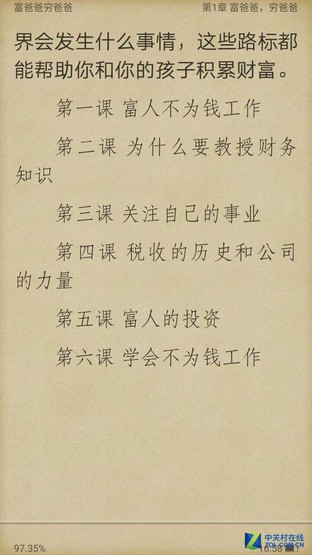 富爸爸穷爸爸 第1章 富爸爸，穷爸爸
界会发生什么事情，这些路标都
能帮助你和你的孩子积累财富。
第一课 富人不为钱工作
第二课 为什么要教授财务
知识
第三课 关注自己的事业
第四课 税收的历史和公司
的力量
第五课 富人的投资
第六课 学会不为钱工作
中关村在线
ZOL.COM.CN
97.35% 16:58